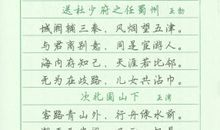 送杜少府之任蜀州 王勃
城阙辅三秦,风烟望五津。
与君离别意,同是宦游人。
海内存知己,天涯若比邻。
无为在歧路,儿女共沾巾。
次北固山下 王湾
客路青山外,行舟绿水前。